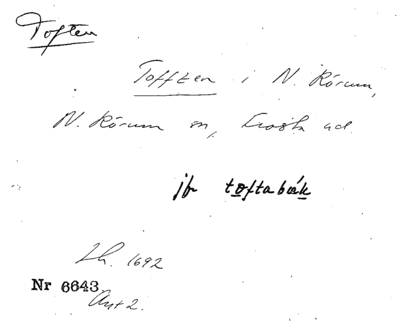 Toften
Tofften i N. Rörum,
N. Rörum sn, Frosta hd.
jfr toftabäk
Lh. 1692
Nr 6643
Ant 2.